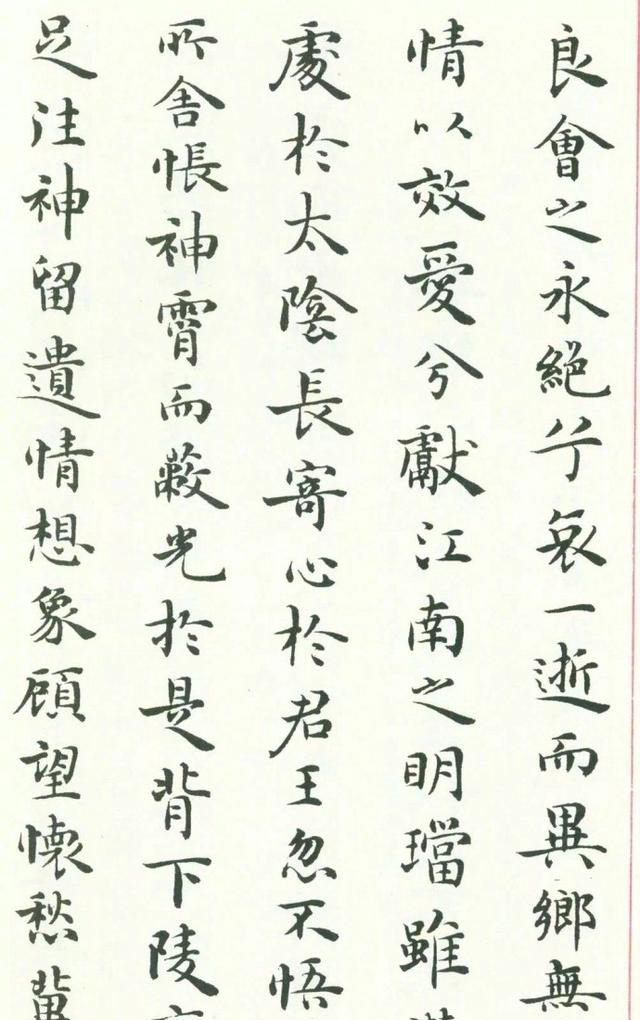 良會之永絕兮哀一逝而異鄉無
情以效愛兮獻江南之明璫雖
處於太陰長寄心於君王忽不悟
所舍悵神霄而蔽光於是背下陵
足往神留遺情想象顧望懷愁冀